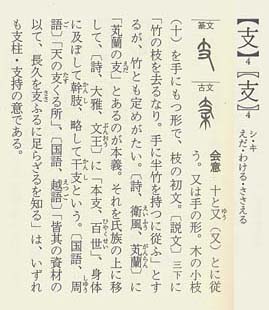 【支】4【支】4
シ・キ
えだ・わける・ささえる
篆文
古文
会意 十と又(又)とに従
う。又は手の形。木の小枝
(十)を手にもつ形で、枝の初文。〔説文〕三下に
「竹の枝を去るなり。手に半竹を持つに從ふ」とす
るが、竹とも定めがたい。〔詩、衛風、芄蘭〕に
「芄蘭の支」とあるのが本義。それを氏族の上に移
して、〔詩、大雅、文王〕に「本支、百世」、身体
に及ぼして幹肢、略して干支という。〔国語、周
語〕「天の支くる所」、〔国語、越語〕「皆其の資材の
以て、長久を支ふるに足らざるを知る」は、いずれ
も支柱・支持の意である。